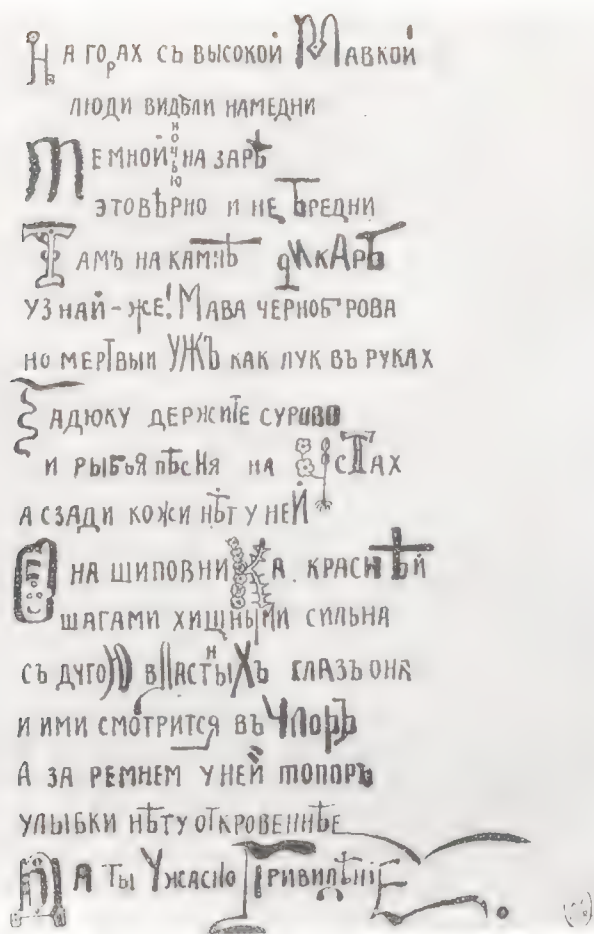 На горах съ высокой Мавкой
люди видѣли намедни
Темной ночью на зарѣ
это вѣрно и не бредни
Тамъ на камнѣ дикарь
узнай-же! Мава черноброва
но мертвый ужъ как лук въ руках
Гадюку держите сурово
и рыбья пѣсня на устах
а сзади кожи нѣт у ней
Она шиповника краснѣй
шагами хищными сильна
съ дугой властныхъ глазъ она
и ими смотрится въ упоръ
А за ремнем у ней топоръ
улыбки нѣту откровеннѣе
Да ты ужасно привидѣніе.